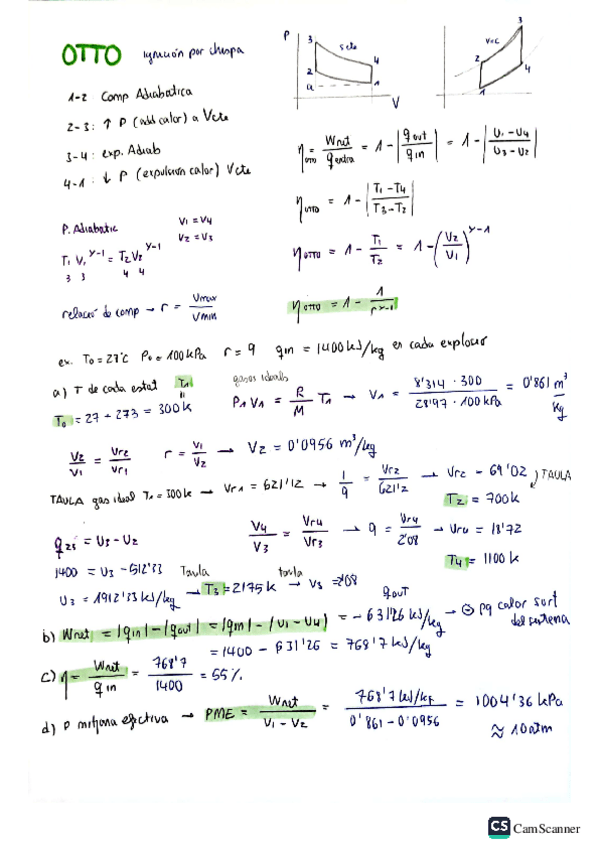 OTTO ignición por chispa
P 3 s cte 4 2 a 1 V
v=c 3 2 4 1
1-2 Comp Adiabatica
2-3: ↑ P (add calor) a Vcte
3-4: exp. Adiab
4-1: ↓ P (expulsion calor) Vcte
η OTTO = Wnet / q entra = 1 - |q out / q in| = 1 - |U1 - U4 / U3 - U2|
η OTTO = 1 - |T1 - T4 / T3 - T2|
P. Adiabatic V1 = V4
V2 = V3
T1 V1^γ-1 = T2 V2^γ-1
3 3 4 4
η OTTO = 1 - T1 / T2 = 1 - (V2 / V1)^γ-1
relació de comp → r = Vmax / Vmin
η OTTO = 1 - 1 / r^γ-1
ex. T0 = 27°C P0 = 100 kPa r = 9 qin = 1400 kJ/kg en cada explosió
a) T de cada estat T1
gasos ideals
T0 = 27 + 273 = 300 K
P1 V1 = R / M T1 → V1 = 8'314 · 300 / 28'97 · 100 kPa = 0'861 m³ / kg
V2 / V1 = Vr2 / Vr1 r = V1 / V2 → V2 = 0'0956 m³/kg
TAULA gas ideal T1 = 300 K → Vr1 = 621'12 → 1 / 9 = Vr2 / 621'2 → Vr2 = 69'02 ) TAULA
T2 = 700 K
q23 = U3 - U2
V4 / V3 = Vr4 / Vr3 → 9 = Vr4 / 2'08 → Vr4 = 18'72
1400 = U3 - 512'33 Taula taula
T4 = 1100 K
U3 = 1912'33 kJ/kg → T3 = 2175 K → V3 = 2'08
q out
b) Wnet = |qin| - |qout| = |qin| - |U1 - U4| = - 631'26 kJ/kg → ⊖ pq calor surt del sistema
= 1400 - 631'26 = 768'7 kJ/kg
c) η = Wnet / qin = 768'7 / 1400 = 55 %
d) P mitjana efectiva → PME = Wnet / V1 - V2 = 768'7 kJ/kg / 0'861 - 0'0956 = 1004'36 kPa
≈ 10 atm
CS CamScanner